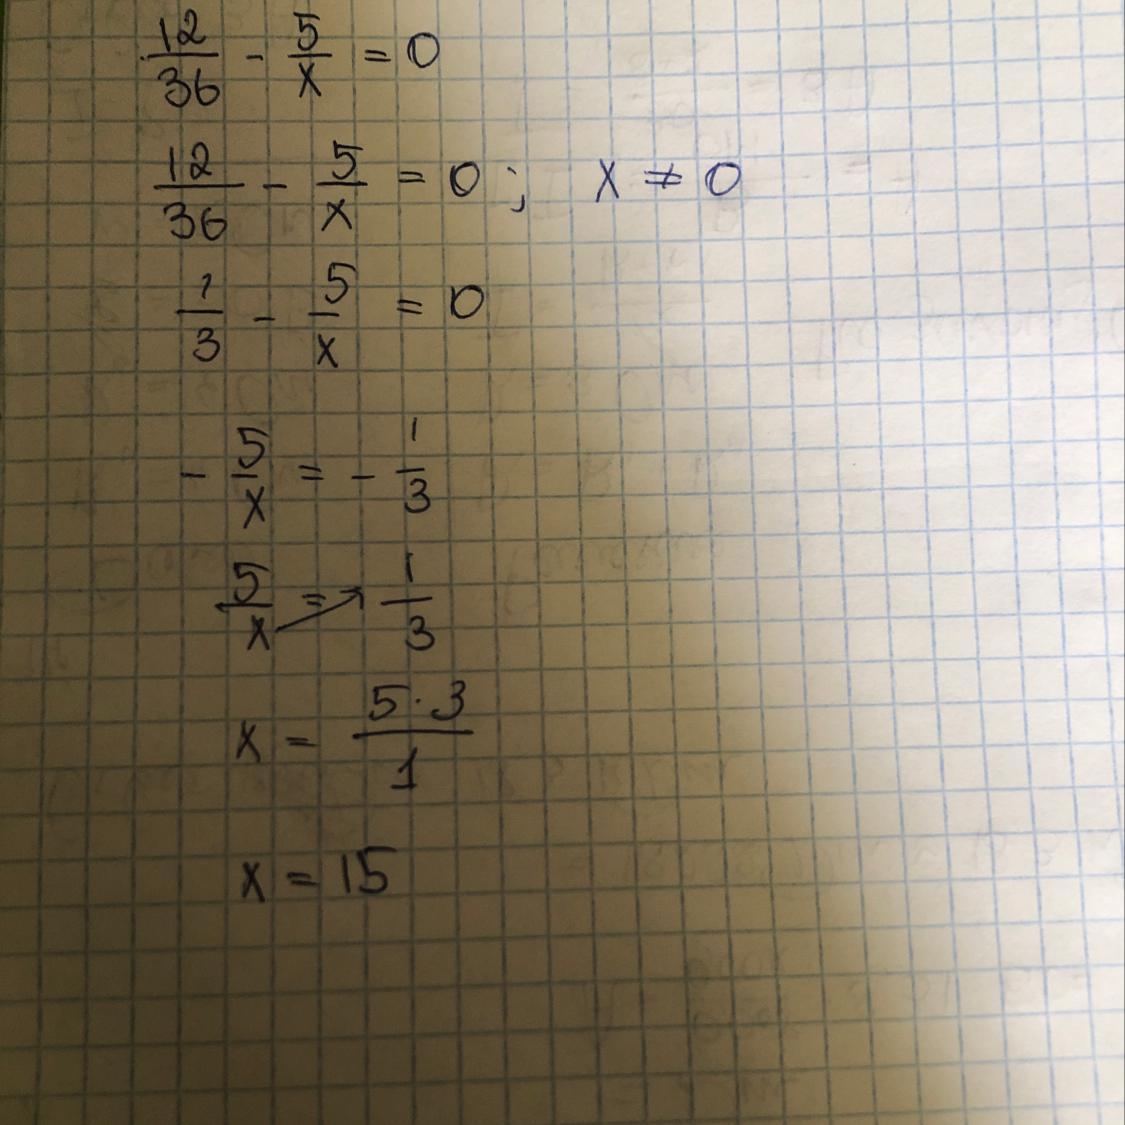 12/36 - 5/x = 0
12/36 - 5/x = 0 ; x ≠ 0
1/3 - 5/x = 0
- 5/x = - 1/3
5/x = 1/3
x = 5·3/1
x = 15